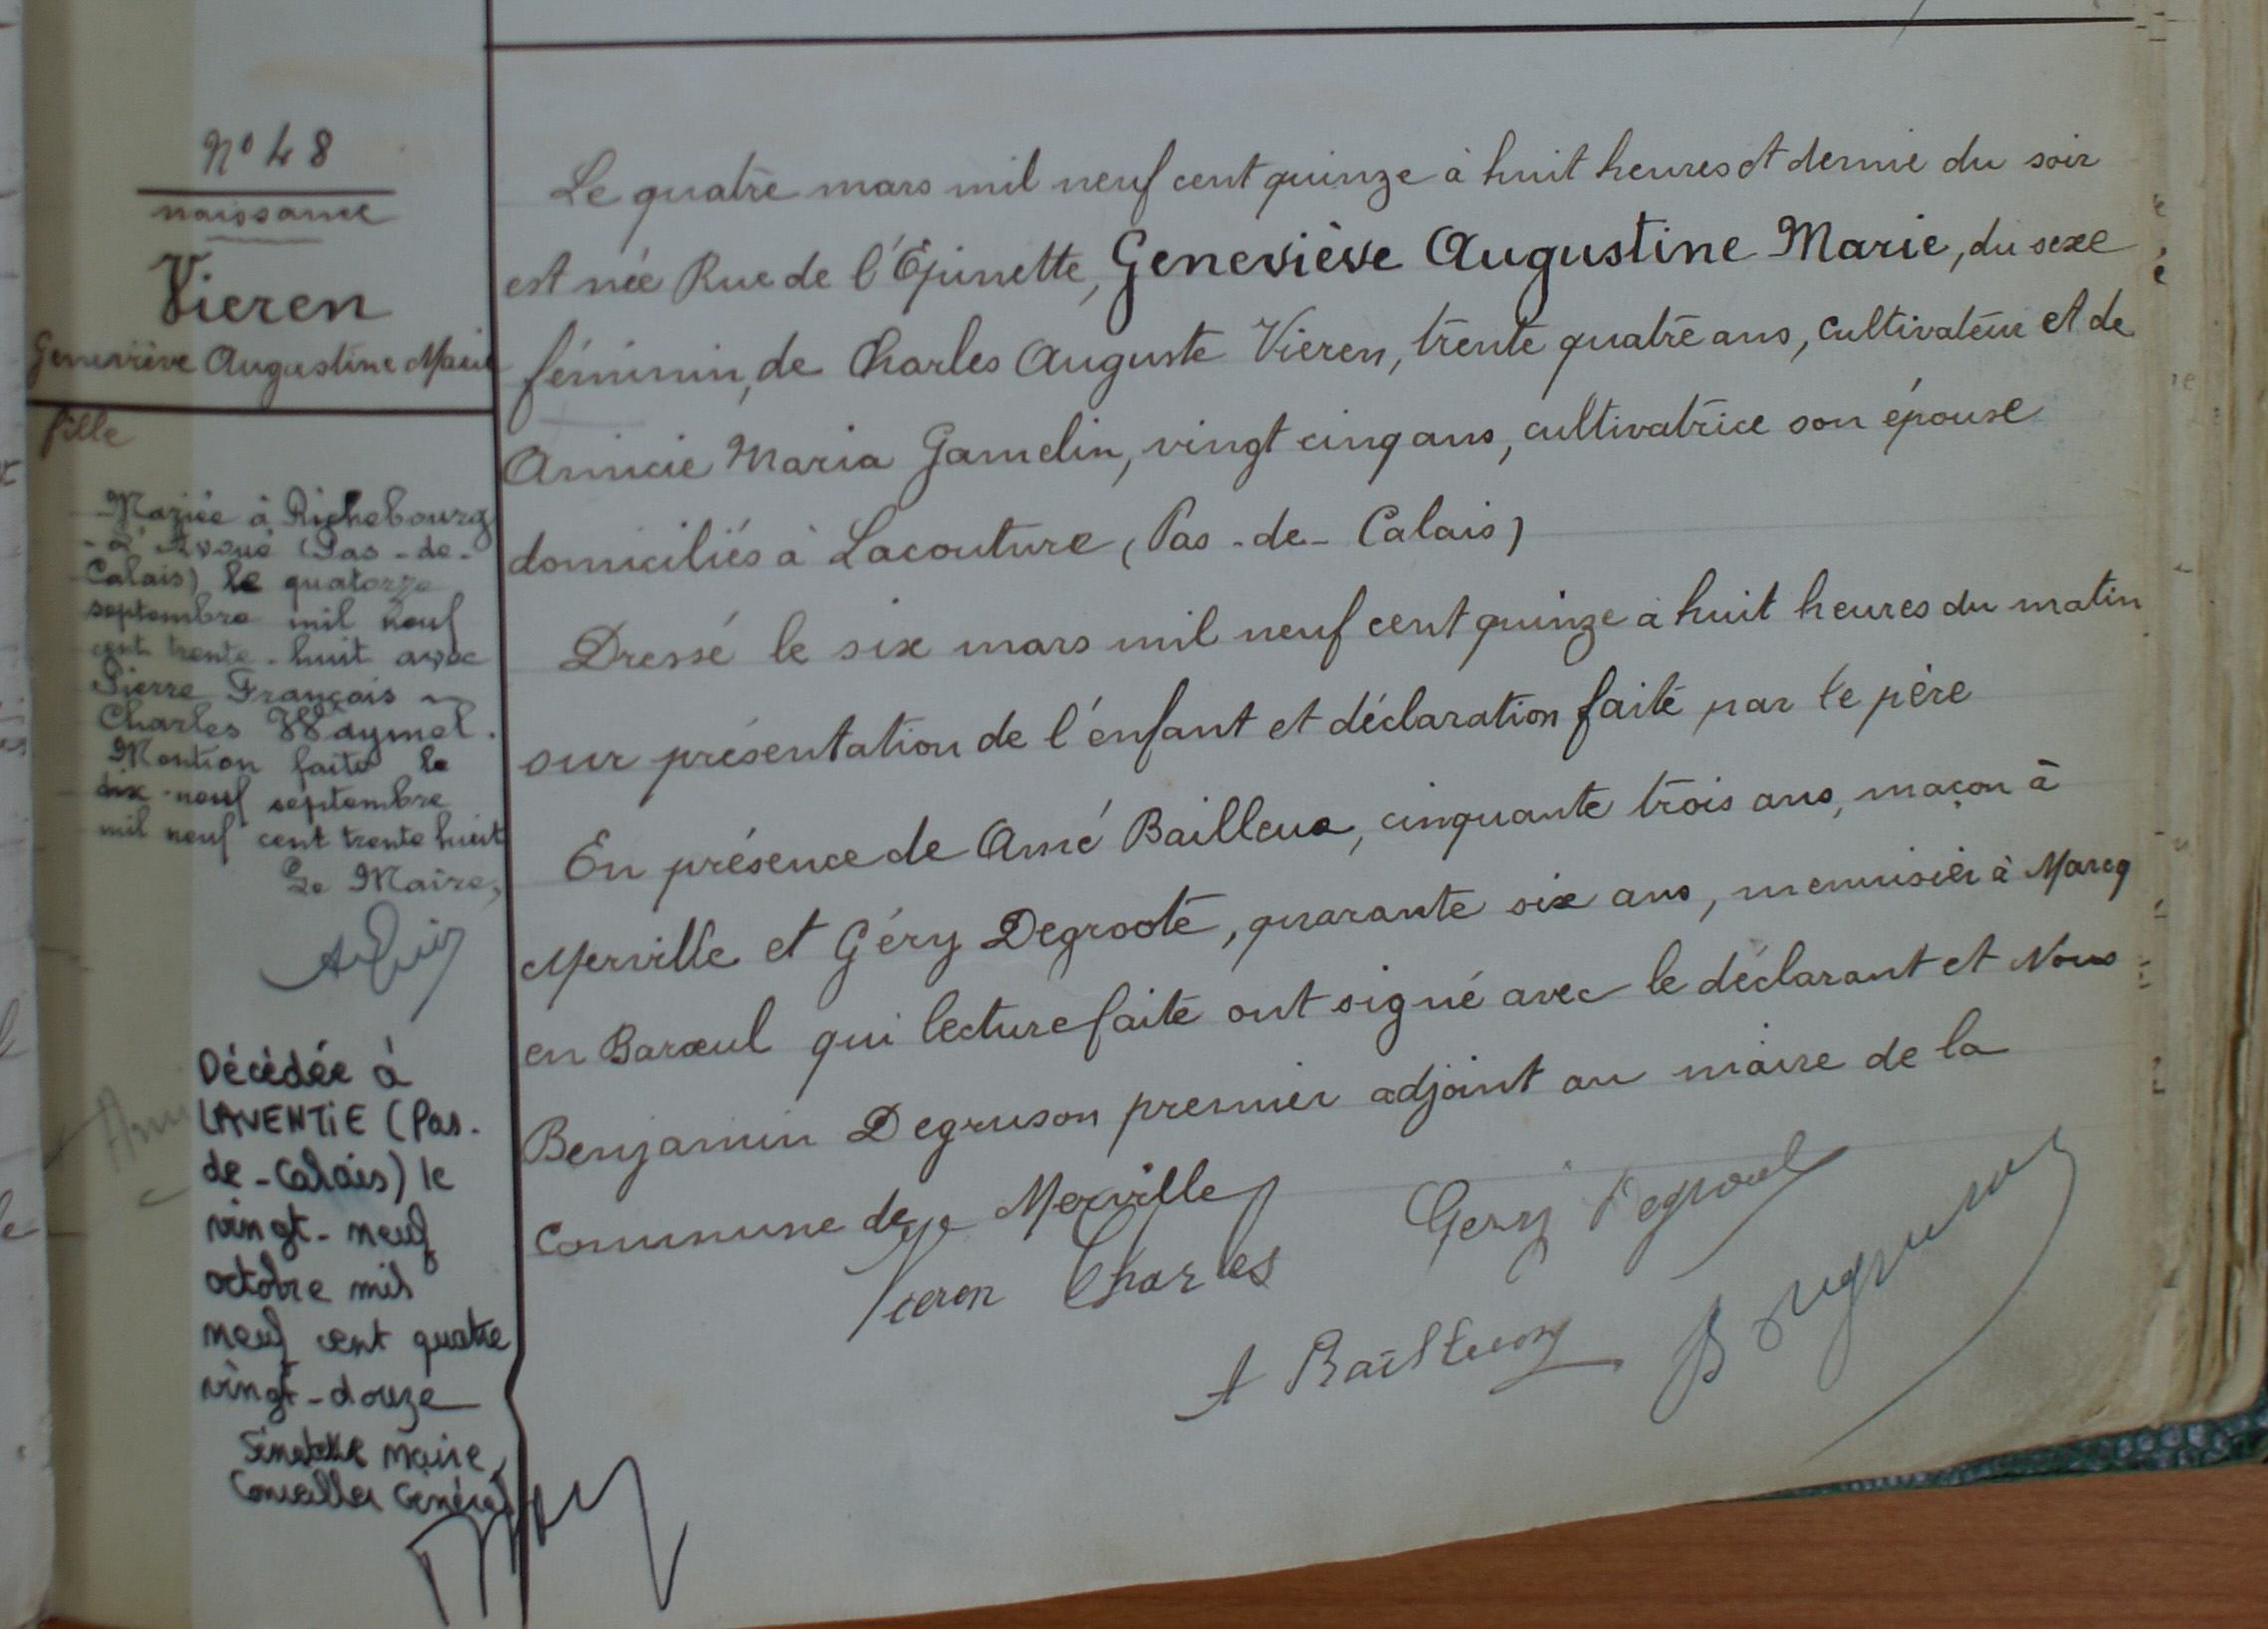 N° 48
naissance
Vieren
Geneviève Augustine Marie
fille
Mariée à Richebourg
-l'Avoué (Pas-de-
Calais) le quatorze
septembre mil neuf
cent trente-huit avec
Pierre François
Charles Waymel.
Mention faite le
dix-neuf septembre
mil neuf cent trente huit
Le Maire,
Décédée à
LAVENTIE (Pas-
de-Calais) le
vingt-neuf
octobre mil
neuf cent quatre
vingt-douze
maire,
Conseiller Général
Le quatre mars mil neuf cent quinze à huit heures et demie du soir
est née Rue de l'Épinette, Geneviève Augustine Marie, du sexe
féminin, de Charles Auguste Vieren, trente quatre ans, cultivateur et de
Anicie Maria Gamelin, vingt cinq ans, cultivatrice son épouse
domiciliés à Lacouture (Pas-de-Calais)
Dressé le six mars mil neuf cent quinze à huit heures du matin
sur présentation de l'enfant et déclaration faite par le père
En présence de Amé Bailleux, cinquante trois ans, maçon à
Merville et Géry Degroote, quarante six ans, menuisier à Marcq
en Barœul qui lecture faite ont signé avec le déclarant et Nous
Benjamin Degruson premier adjoint au maire de la
Commune de Merville
Vieren Charles
Gery
A Bailleux
B Degruson